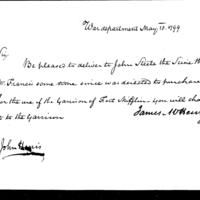 War department May 10. 1799
Sir
Be pleased to deliver to John the
Mr Francis some since was directed to purchase
for the use of the Garrison of Fort Mifflin. You will
it to the Garrison
James McHenry
John Harris